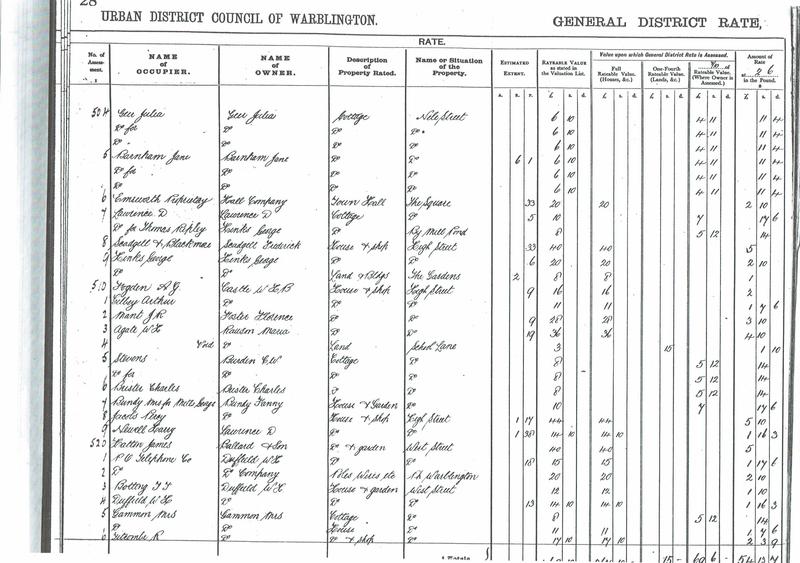 28
URBAN DISTRICT COUNCIL OF WARBLINGTON. GENERAL DISTRICT RATE,
RATE.
No. of Assessment. NAME OF OCCUPIER. NAME OF OWNER. Description of Property Rated. Name or Situation of the Property. ESTIMATED EXTENT. RATEABLE VALUE as stated in the Valuation List. Value upon which General District Rate is Assessed. Full Rateable Value. (Houses, &c.) One-Fourth Rateable Value. (Lands, &c.) Rateable Value. (Where Owner is Assessed.) Amount of Rate at 2 6 in the Pound.
a. r. p. £ s. d. £ s. d. £ s. d. £ s. d. £ s. d.
504 Ger Julia Ger Julia Cottage Nile Street 6 10 4 11 11 4
Do for Do Do Do 6 10 4 11 11 4
Do Do Do Do 6 10 4 11 11 4
5 Barnham Jane Barnham Jane Do Do 6 1 6 10 4 11 11 4
Do for Do Do Do 6 10 4 11 11 4
Do Do Do Do 6 10 4 11 11 4
6 Emsworth Proprietary Hall Company Town Hall The Square 33 20 20 2 10
7 Lawrence D Lawrence D Cottage Do 5 10 7 17 6
Do for Thomas Ripley Hinks George Do By Mill Pond 8 5 12 14
8 Seadgell & Blackman Seadgell Frederick House & shop High Street 33 40 40 5
9 Hinks George Hinks George Do Do 6 20 20 2 10
Do Do Land & Bldgs The Gardens 2 8 8 1
510 Hogden A.G. Castle W E B House & shop High Street 9 16 16 2
1 Silley Arthur Do Do Do 11 11 1 7 6
2 Mant J R Foster Florence Do Do 9 28 28 3 10
3 Agate W H Rauson Maria Do Do 19 36 36 4 10
4 Void Land School Lane 3 15 1 10
5 Stevens Burden C.W Cottage Do 8 5 12 14
Do for Do Do Do 8 5 12 14
6 Buster Charles Buster Charles Do Do 8 5 12 14
7 Bundy Mrs for Mills George Bundy Fanny House & Garden Do 10 7 17 6
8 Jacobs Percy Do House & shop High Street 1 17 44 44 5 10
9 Newell Harry Lawrence D Do Do 1 38 14 10 14 10 1 16 3
520 Hatton James Ballard & Son Do & garden West Street 40 40 5
1 P.O Telephone Co Duffield W H Do Do 18 15 15 1 17 6
2 Do Do Company Poles Wires etc Warblington 20 20 2 10
3 Botting Duffield W H House & garden West Street 12 12 1 10
4 Duffield W H Do Do Do 13 14 10 14 10 1 16 3
5 Gammon Mrs Gammon Mrs Cottage Do 8 5 12 14
Do Do House Do 11 11 1 7 6
6 R Do Do & shop Do 17 10 17 10 2 3 9
Totals 15 69 6 54 13 7